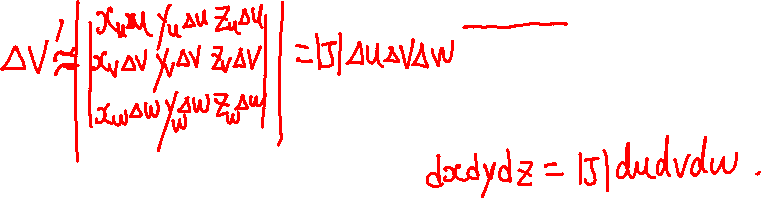 ΔV' ≈ | | x_u Δu y_u Δu z_u Δu |
| x_v Δv y_v Δv z_v Δv | = |J| Δu Δv Δw
| x_w Δw y_w Δw z_w Δw | |
dxdydz = |J| dudvdw.